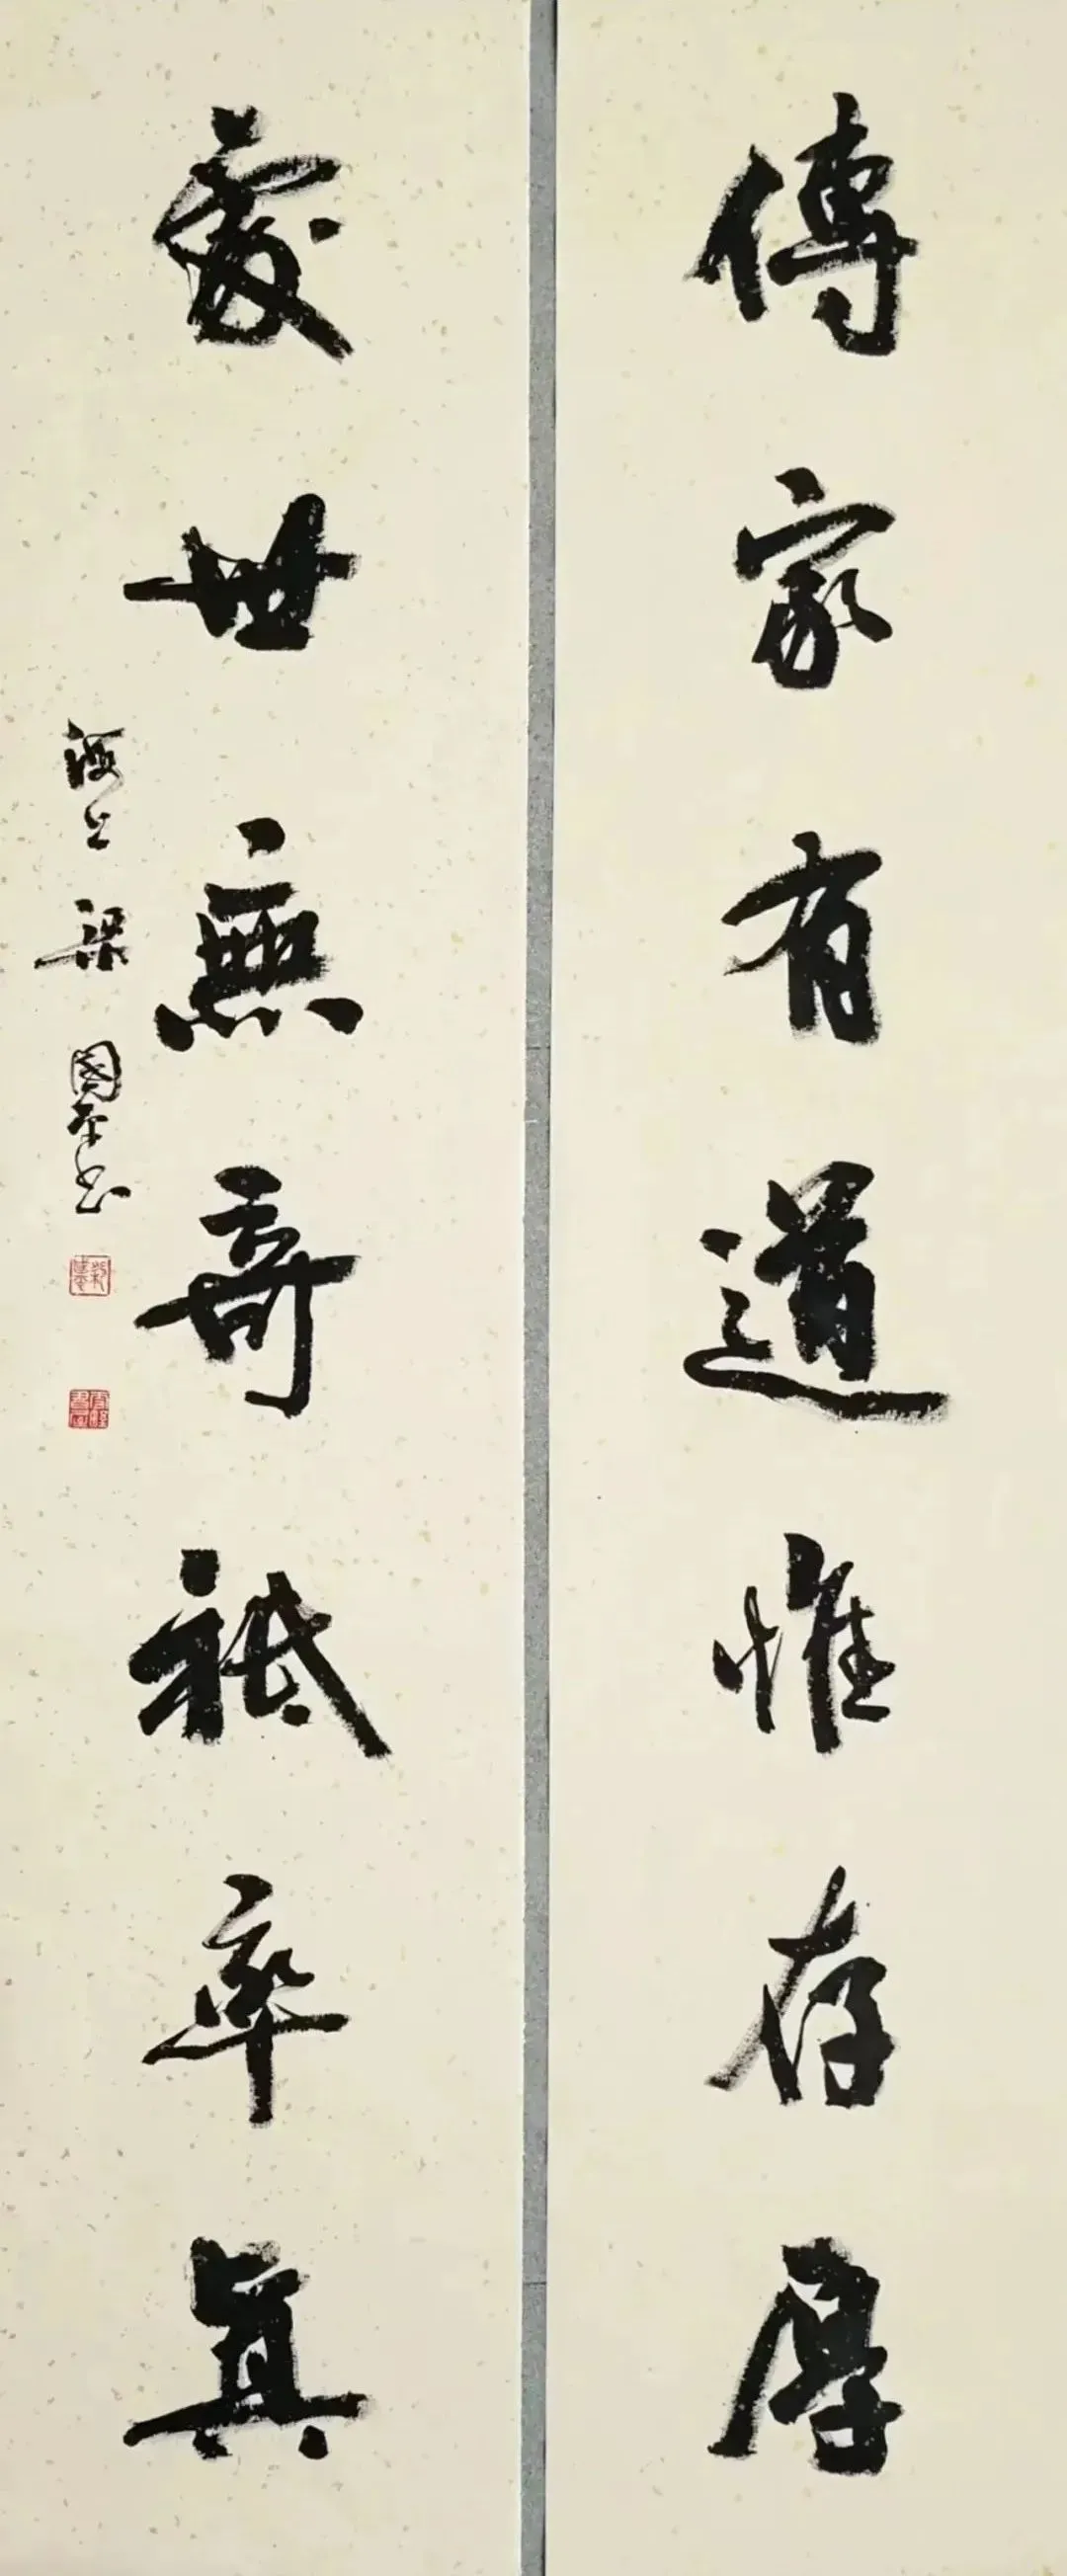 傳家有道惟存厚
處世無奇祇率真
海上梁國平書